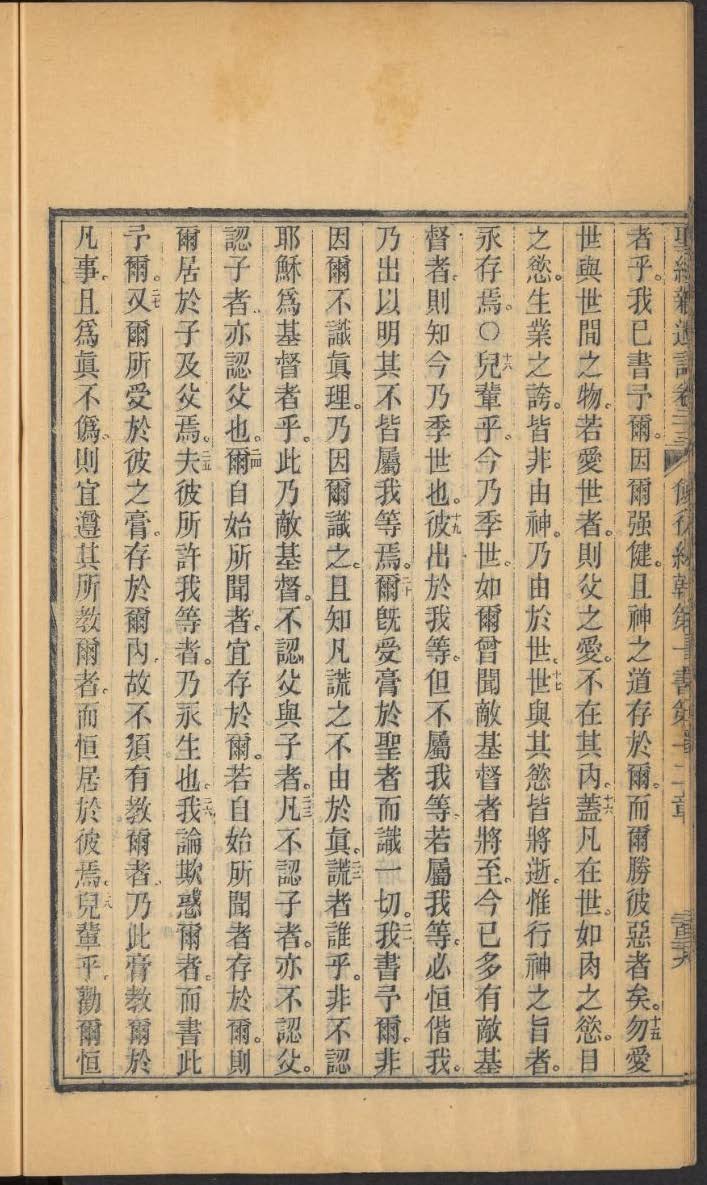 者乎。我已書予爾。因爾强健。且神之道存於爾。而爾勝彼惡者矣。十五勿愛
世與世間之物。若愛世者。則父之愛。不在其內。十六蓋凡在世。如肉之慾。目
之慾。生業之誇。皆非由神。乃由於世。十七世與其慾皆將逝。惟行神之旨者。
永存焉。○十八兒輩乎。今乃季世。如爾曾聞敵基督者將至。今已多有敵基
督者。則知今乃季世也。十九彼出於我等。但不屬我等。若屬我等。必恒偕我。
乃出以明其不皆屬我等焉。二十爾既受膏於聖者而識一切。二一我書予爾。非
因爾不識眞理。乃因爾識之。且知凡謊之不由於眞。二二謊者誰乎。非不認
耶穌爲基督者乎。此乃敵基督。不認父與子者。二三凡不認子者。亦不認父。
認子者。亦認父也。二四爾自始所聞者。宜存於爾。若自始所聞者存於爾。則
爾居於子及父焉。二五夫彼所許我等者。乃永生也。二六我論欺惑爾者。而書此
予爾。二七又爾所受於彼之膏。存於爾內。故不須有教爾者。乃此膏教爾於
凡事。且爲眞不僞。則宜遵其所教爾者。而恒居於彼焉。二八兒輩乎。勸爾恒